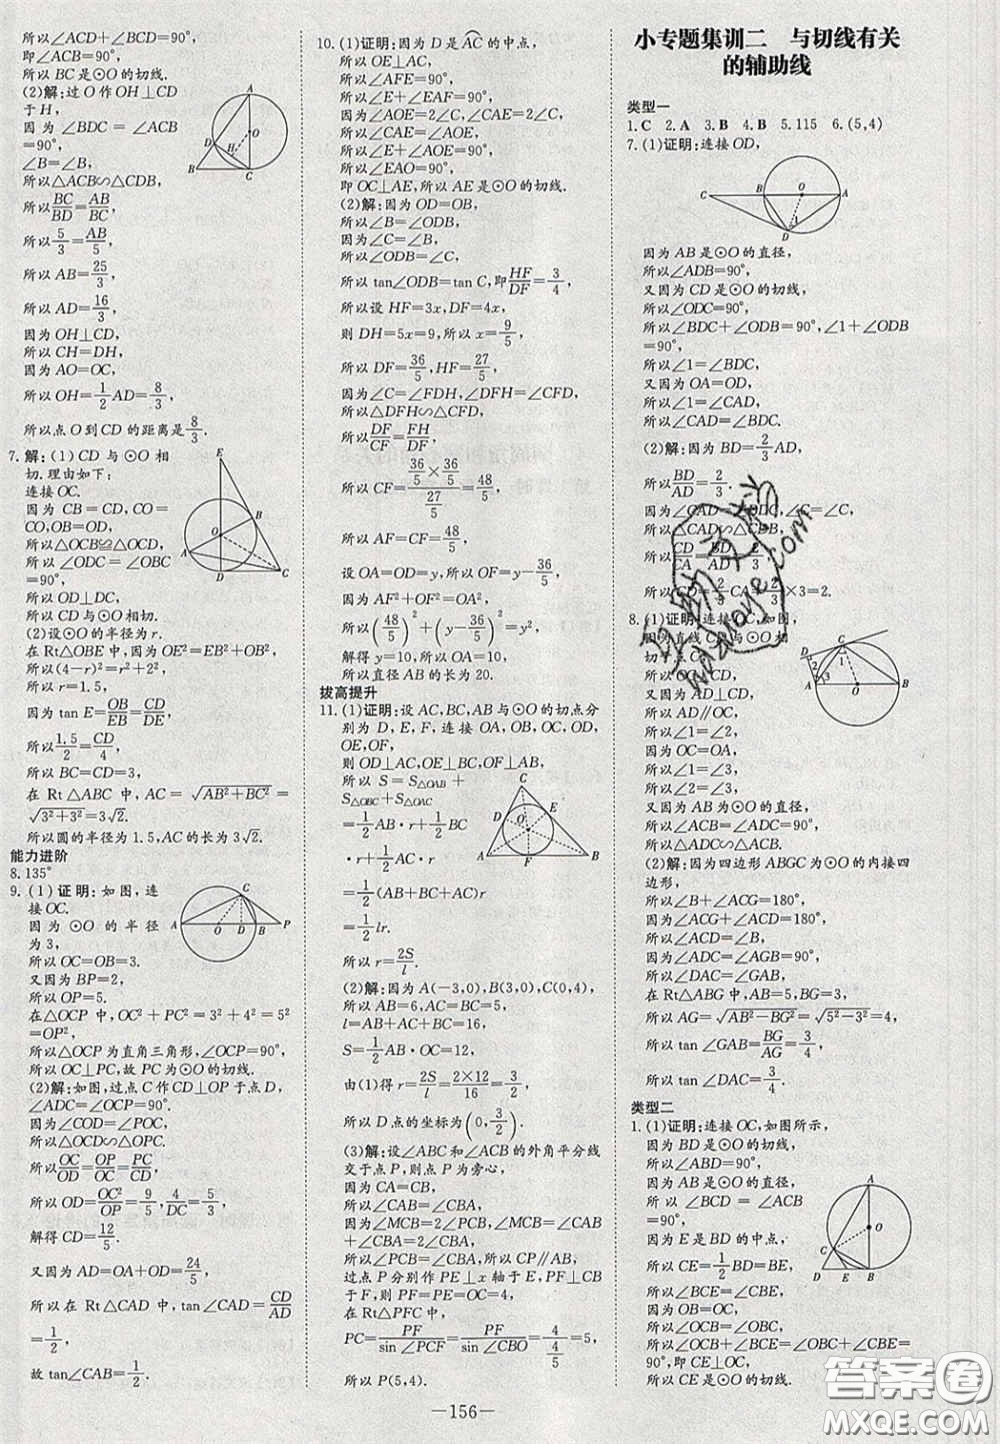 所以∠ACD+∠BCD=90°,
即∠ACB=90°,
所以BC是⊙O的切线.
(2)解:过O作OH⊥CD
于H,
因为∠BDC=∠ACB
=90°,
∠B=∠B,
所以△ACB∽△CDB,
所以BC/BD=AB/BC,
所以5/3=AB/5,
所以AB=25/3,
所以AD=16/3,
因为OH⊥CD,
所以CH=DH,
因为AO=OC,
所以OH=1/2AD=8/3,
所以点O到CD的距离是8/3.
7.解:(1)CD与⊙O相
切.理由如下:
连接OC.
因为CB=CD,CO=
CO,OB=OD,
所以△OCB≌△OCD,
所以∠ODC=∠OBC
=90°,
所以OD⊥DC,
所以CD与⊙O相切.
(2)设⊙O的半径为r.
在Rt△OBE中,因为OE²=EB²+OB²,
所以(4-r)²=r²+2²,
所以r=1.5,
因为tan E=OB/EB=CD/DE,
所以1.5/2=CD/4,
所以BC=CD=3,
在Rt△ABC中,AC=√(AB²+BC²)=
√(3²+3²)=3√2.
所以圆的半径为1.5,AC的长为3√2.
能力进阶
8.135°
9.(1)证明:如图,连
接OC.
因为⊙O的半径
为3,
所以OC=OB=3.
又因为BP=2,
所以OP=5.
在△OCP中,OC²+PC²=3²+4²=5²
=OP²,
所以△OCP为直角三角形,∠OCP=90°,
所以OC⊥PC,故PC为⊙O的切线.
(2)解:如图,过点C作CD⊥OP于点D,
∠ADC=∠OCP=90°.
因为∠COD=∠POC,
所以△OCD∽△OPC.
所以OC/OD=OP/OC=PC/CD,
所以OD=OC²/OP=9/5,4/CD=5/3,
解得CD=12/5.
又因为AD=OA+OD=24/5,
所以在Rt△CAD中,tan∠CAD=CD/AD
=1/2,
故tan∠CAB=1/2.
10.(1)证明:因为D是AC的中点,
所以OE⊥AC,
所以∠AFE=90°,
所以∠E+∠EAF=90°,
因为∠AOE=2∠C,∠CAE=2∠C,
所以∠CAE=∠AOE,
所以∠E+∠AOE=90°,
所以∠EAO=90°,
即OC⊥AE,所以AE是⊙O的切线.
(2)解:因为OD=OB,
因为∠C=∠B,
所以∠ODB=∠C,
所以tan∠ODB=tan C,即HF/DF=3/4,
所以设HF=3x,DF=4x,
则DH=5x=9,所以x=9/5,
所以DF=36/5,HF=27/5,
因为∠C=∠FDH,∠DFH=∠CFD,
所以△DFH∽△CFD,
所以DF/CF=FH/DF,
所以CF=(36/5×36/5)/(27/5)=48/5,
所以AF=CF=48/5,
设OA=OD=y,所以OF=y-36/5,
因为AF²+OF²=OA²,
所以(48/5)²+(y-36/5)²=y²,
解得y=10,所以OA=10,
所以直径AB的长为20.
拔高提升
11.(1)证明:设AC,BC,AB与⊙O的切点分
别为D,E,F,连接OA,OB,OC,OD,
OE,OF,
则OD⊥AC,OE⊥BC,OF⊥AB,
所以S=S△OAB+
S△OBC+S△OAC
=1/2AB·r+1/2BC
·r+1/2AC·r
=1/2(AB+BC+AC)r
=1/2lr.
所以r=2S/l.
(2)解:因为A(-3,0),B(3,0),C(0,4),
所以AB=6,AC=BC=5,
l=AB+AC+BC=16,
S=1/2AB·OC=12,
由(1)得r=2S/l=2×12/16=3/2,
所以D点的坐标为(0,3/2).
(3)解:设∠ABC和∠ACB的外角平分线
交于点P,则点P为旁心,
因为CA=CB,
所以∠CAB=∠CBA,
因为∠MCB=2∠PCB=∠CAB+
∠CBA=2∠CBA,
所以∠PCB=∠CBA,所以CP∥AB,
过点P分别作PE⊥x轴于E,PF⊥CB
于F,则PF=PE=OC=4,
在Rt△PFC中,
PC=PF/sin∠PCF=PF/sin∠CBO=4/(4/5)=5,
所以P(5,4).
小专题集训二 与切线有关
的辅助线
类型一
1.C 2.A 3.B 4.B 5.115 6.(5,4)
7.(1)证明:连接OD,
因为AB是⊙O的直径,
所以∠ADB=90°,
又因为CD是⊙O的切线,
所以∠ODC=90°,
所以∠BDC+∠ODB=90°,∠1+∠ODB
=90°,
所以∠1=∠BDC,
又因为OA=OD,
所以∠1=∠CAD,
所以∠BDC=∠CAD.
(2)解:因为BD=2/3AD,
所以BD/AD=2/3.
因为∠CAD=∠BDC,∠C=∠C,
所以△CAD∽△CDB,
所以CD/CA=BD/AD=2/3,
所以CD=2/3CA=2/3×3=2.
8.(1)证明:连接OC,如图,
因为直线CD与⊙O相
切于点C,
所以OC⊥CD,
又因为AD⊥CD,
所以AD∥OC,
所以∠1=∠2,
因为OC=OA,
所以∠1=∠3,
所以∠2=∠3,
又因为AB为⊙O的直径,
所以∠ACB=90°,
所以∠ACB=∠ADC,
所以∠ADC∽△ACB.
(2)解:因为四边形ABGC为⊙O的内接四
边形,
所以∠B+∠ACG=180°,
因为∠ACG+∠ACD=180°,
所以∠ACD=∠B,
因为∠ADC=∠AGB=90°,
所以∠DAC=∠GAB,
在Rt△ABG中,
所以AG=√(AB²-BG²)=√(5²-3²)=4,
所以tan∠GAB=BG/AG=3/4,
所以tan∠DAC=3/4.
类型二
1.(1)证明:连接OC,如图所示,
因为BD是⊙O的切线,
所以∠ABD=90°,
因为AB是⊙O的直径,
所以∠BCD=∠ACB=90°,
因为E是BD的中点,
所以CE=1/2BD=BE,
所以∠BCE=∠CBE,
因为OC=OB,
所以∠OCB=∠OBC,
所以∠OCB+∠BCE=∠OBC+∠CBE=
90°,即CE⊥OC,
所以CE是⊙O的切线.
—156—
答案圈
MXQE.COM